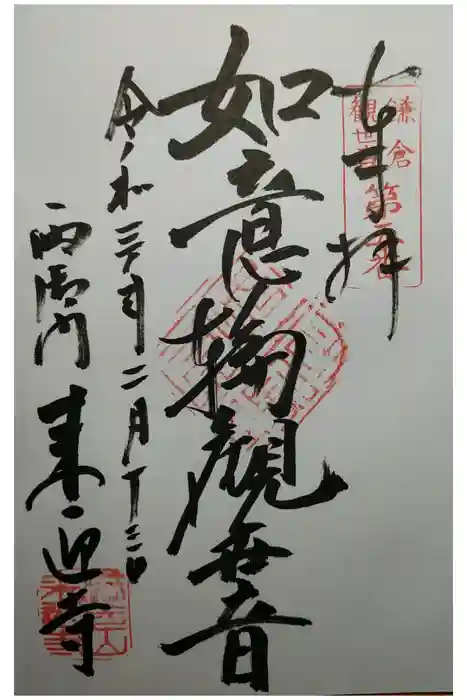 奉拝
鎌倉
観世音
第五番
如意輪觀世音
令和三年二月十三日
西御門 来迎寺